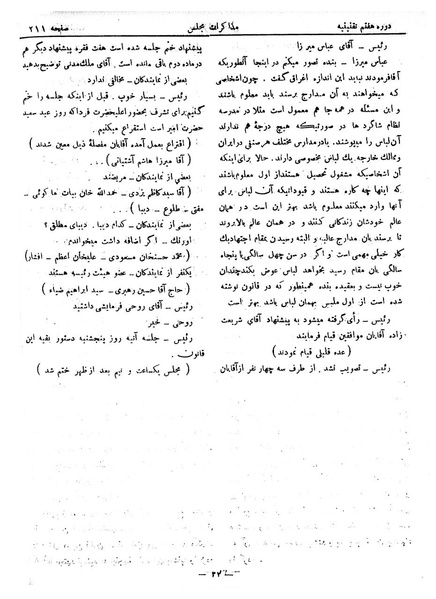 دوره هفتم تقنینیه
مذاکرات مجلس
صفحه ۲۱۱
رئیس ـ آقای عباس میرزا
عباس میرزا ـ بنده تصور میکنم در اینجا آنطوریکه
آقا فرمودند نباید این اندازه اغراق گفت . چون اشخاصی
که میخواهند به آن مدارج برسند باید معلوم باشند
و این مسئله در همه جا هم معمول است مثلا در مدرسه
نظام شاگرد ها در صورتیکه هیچ درجهٔ هم ندارند
آن لباس را میپوشند . یا در مدارس مختلف هر صنفی در ایران
و ممالک خارجه یک لباس مخصوصی دارند . حالا برای اینکه
آن اشخاصیکه مشغول تحصیل هستند از اول معلوم باشند
که اینها چه کاره هستند و قبود اتیکه آن لباس برای
آنها وارد میکنند معلوم باشد بهتر این است در همان
عالم خودشان زندگانی کنند و در همان عالم بالا بروند
تا برسند بان مدارج عالیه و البته رسیدن بمقام اجتهاد یک
کار خیلی مهمی است و اگر در سن چهل سالگی یا پنجاه
سالگی بان مقام رسید بخواهد لباس عوض بکند چندان
خوب نیست و بعقیده بنده همینطور که در قانون نوشته
شده است از اول ملبس بهمان لباس باشد بهتر است
رئیس ـ رأی گرفته میشود به پیشنهاد آقای شریعت
زاده آقایان موافقین قیام فرمایند
( عده قلیلی قیام نمودند )
رئیس ـ تصویب نشد . از طرف سه چهار نفر از آقایان
پیشنهاد ختم جلسه شده است هفت فقره پیشنهاد دیگر هم
در ماده دوم باقی مانده است . آقای ملک مدنی توضیح بدهید
بعضی از نمایندگان ـ مخالفی ندارد
رئیس ـ بسیار خوب . قبل از اینکه جلسه را ختم
کنیم برای تشرف بحضور اعلیحضرت فردا که روز عید سعید
حضرت امیر است استقراع میکنیم .
( اقتراع بعمل آمده آقایان مفصلهٔ ذیل معین شدند )
( آقا میرزا هاشم آشتیانی ) ...
بعضی از نمایندگان ـ مریضند
( آقا سید کاظم یزدی ـ حمدالله خان بیات ماکوئی ـ
مفتی ـ طلوع ـ دیبا ) ...
بعضی از نمایندگان ـ کدام دیبا . دیبای مطلق ؟
اورنگ ـ اگر اضافه داشت میخواندم .
( محمد حسنخان مسعودی ـ علیخان اعظم ـ افشار )
یکنفر از نمایندگان ـ عضو هیئت رئیسه هستند
( حاج آقا حسین رهبری ـ سید ابراهیم ضیاء )
رئیس ـ آقای روحی فرمایشی داشتید
روحی ـ خیر
رئیس ـ جلسه آتیه روز پنجشنبه دستور بقیه این
قانون .
( مجلس یکساعت و نیم بعد از ظهر ختم شد )